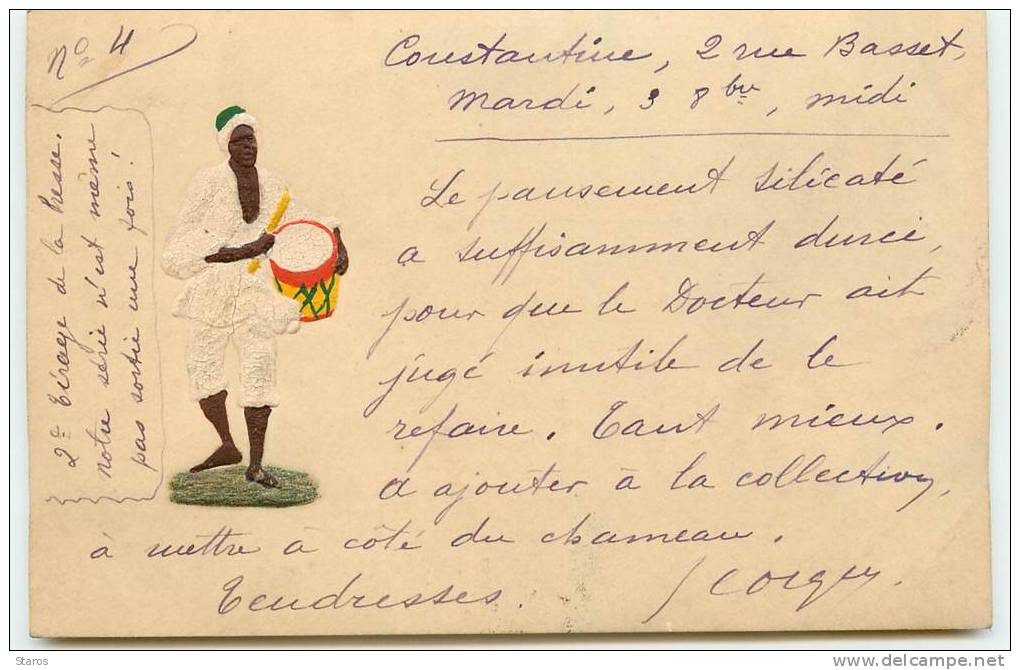 No 4
Constantine, 2 rue Basset,
Mardi, 3 8bre, midi
Le pansement silicaté
a suffisamment durci,
pour que le Docteur ait
jugé inutile de le
refaire. Tant mieux.
a ajouter à la collection,
à mettre à côté du chameau.
Tendresses.
2e Tirage de la Presse.
notre série n'est même
pas sortie une fois!
Staros
delcampe.net